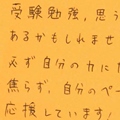 受験勉強,思う
あるかもしれませ
必ず自分の力にた
焦らず,自分のペー
応援しています!